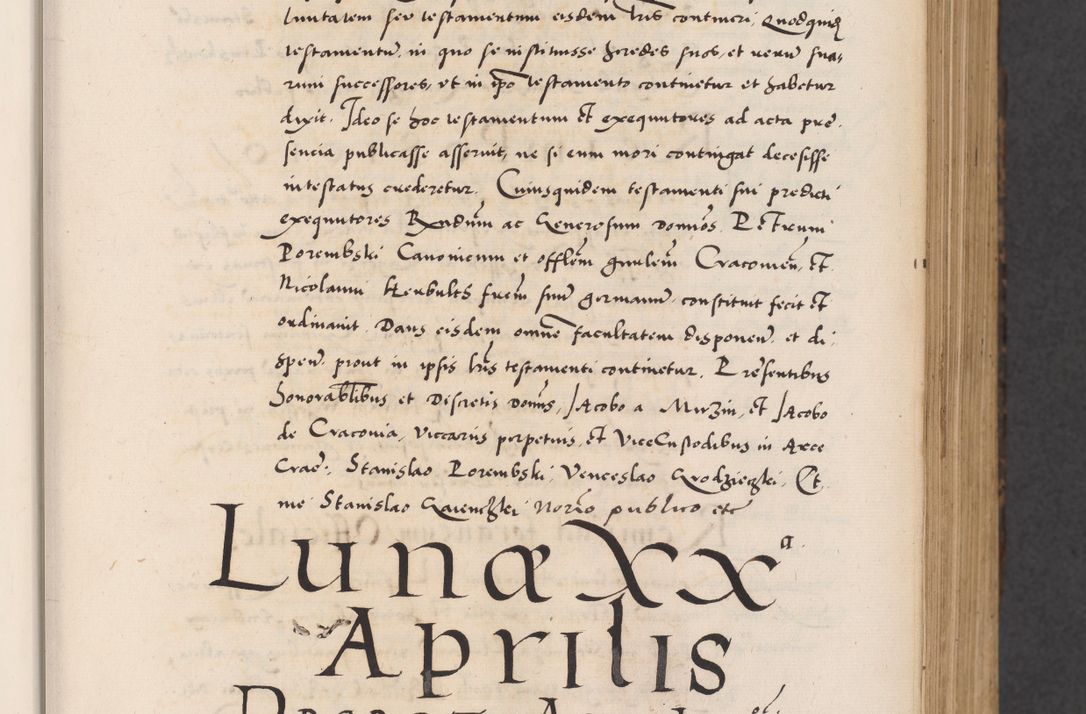 luntatem seu testamentum eisdem lris contineri, Quodquidẽ
testamentũ, in quo se instituisse heredes suos, et rerum sua-
rum successores, ut in ipso testamento continetur et habetur
dixit. Ideo se hoc testamentum et exequutores ad acta pre
sencia publicasse asseruit, ne si eum mori contingat decesisse
intestatus crederetur. Cuiusquidem testamenti sui predicti
exequutores Rxndum ac Generosum domnos Petrum
Porembski Canonicum et offlem gnalem Cracovien, et
Nicolaum Herbults frem suũ germanum, constituit fecit et
ordinavit. Dans eisdem omnem facultatem disponen et di
spen prout in ipsis lris testamenti continetur. Presentibus
honorablibus et discretis domnis, Jacobo a Muzin, et Jacobo
de Cracovia, Viccariis perpetuis, et ViceCustodibus in Arce
Crac, Stanislao Porembski, Venceslao Grodzieczki, Et
me Stanislao Gaienczkei Norio publico etc
Lunæ XXa
Aprilis